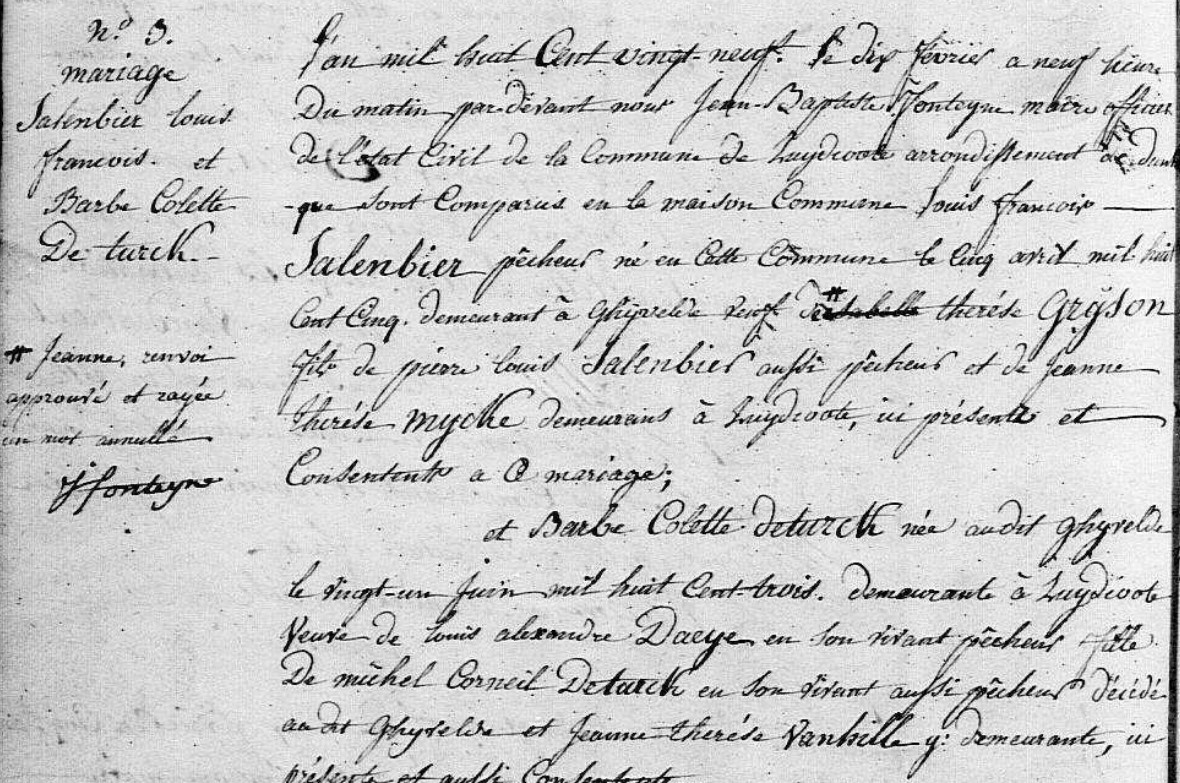 n.o 3.
mariage
Salenbier louis
francois. et
Barbe Colette
De turck.-
# Jeanne, renvoi
approuvé et rayée
un mot annullé
Jfonteyne
l'an mil huit Cent vingt-neuf. le dix fevrier a neuf heure
Du matin par-devant nous Jean-Baptiste Fonteyne maire officier
de l'état Civil de la Commune de Zuydcoote arrondissement de dunk
-que sont Comparus en la maison Commune louis francois
Salenbier pêcheur né en Cette Commune le Cinq avril mil huit
Cent Cinq. demeurant à Ghyvelde veuf de # isabelle therése Gryson
fils de pierre louis Salenbier aussi pêcheur et de Jeanne
therése mycke demeurans à Zuydcoote, ici présents et
Consentents a Ce mariage;
et Barbe Colette deturck née audit ghyvelde
le vingt-un Juin mil huit Cent-trois. demeurante à Zuydcoote
Veuve de louis alexandre Daeye en son vivant pêcheur fille
De michel Corneil Deturck en son vivant aussi pêcheur décédé
audit Ghyvelde et Jeanne-therése Vanhille y: demeurante, ici
présente et aussi Consentente